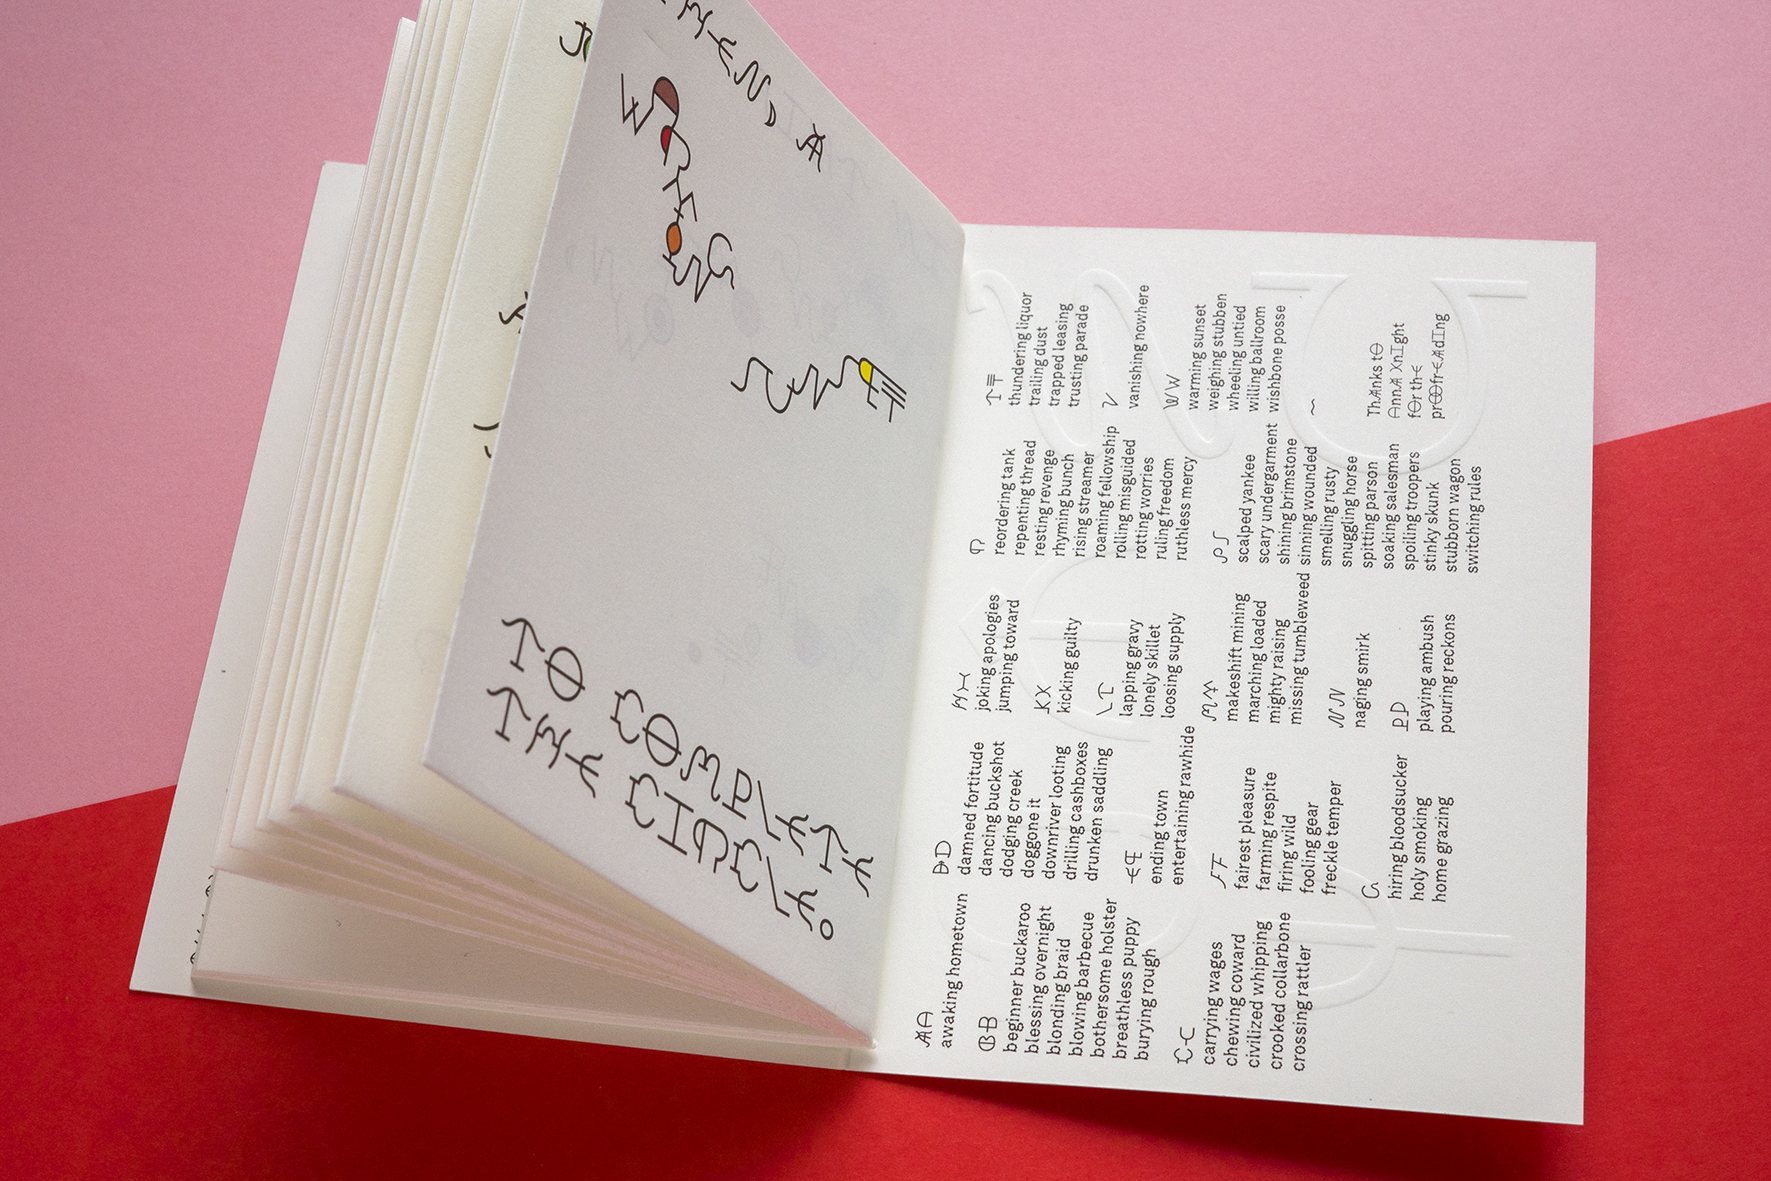 TO COMPLETE
THE CIRCLE.
AA
awaking hometown
BB
beginner buckaroo
blessing overnight
blonding braid
blowing barbecue
bothersome holster
breathless puppy
burying rough
CC
carrying wages
chewing coward
civilized whipping
crooked collarbone
crossing rattler
DD
damned fortitude
dancing buckshot
dodging creek
doggone it
downriver looting
drilling cashboxes
drunken saddling
EE
ending town
entertaining rawhide
FF
fairest pleasure
farming respite
firing wild
fooling gear
freckle temper
hiring bloodsucker
holy smoking
home grazing
joking apologies
jumping toward
kicking guilty
lapping gravy
lonely skillet
loosing supply
makeshift mining
marching loaded
mighty raising
missing tumbleweed
NN
naging smirk
PD
playing ambush
pouring reckons
reordering tank
repenting thread
resting revenge
rhyming bunch
rising streamer
roaming fellowship
rolling misguided
rotting worries
ruling freedom
ruthless mercy
scalped yankee
scary undergarment
shining brimstone
sinning wounded
smelling rusty
snuggling horse
spitting parson
soaking salesman
spoiling troopers
stinky skunk
stubborn wagon
switching rules
thundering liquor
trailing dust
trapped leasing
trusting parade
V
vanishing nowhere
WW
warming sunset
weighing stubben
wheeling untied
willing ballroom
wishbone posse
~
ThAnks tO
AnnA KnIght
fOr thE
prOOfrEAdIng